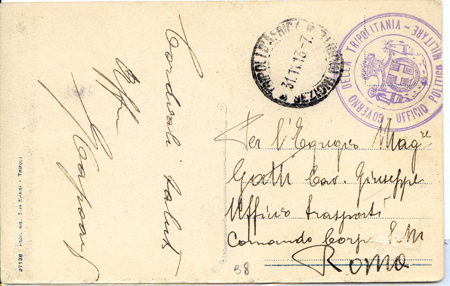 Cordiali saluti
31.1.13-7
GOVERNO DELLA TRIPOLITANIA - UFFICIO POLITICO MILITARE
Per l'Egregio Magre
Gatti Cav. Giuseppe
Ufficio trasporti
Comando Corpo S.M
Roma
38
27138
TRIPOLI